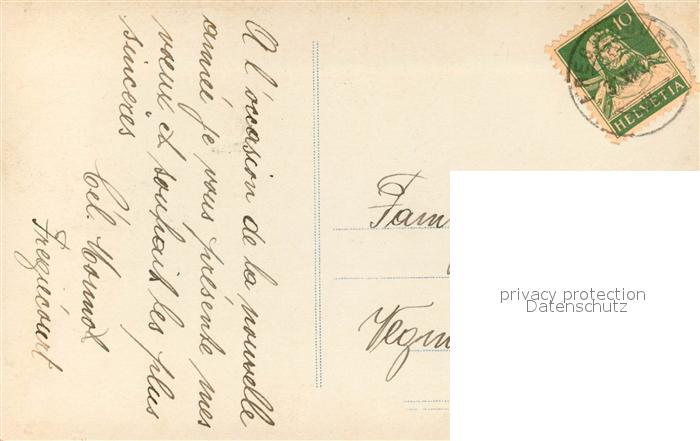 A l'occasion de la nouvelle
année je vous présente mes
vœux et souhaits les plus
sincères
Cél. Monnot
Fregiécourt
Fam
10
HELVETIA
privacy protection
Datenschutz